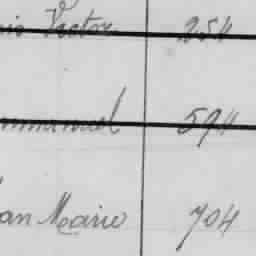 Victor 254
mmanuel 594
an Marie 704